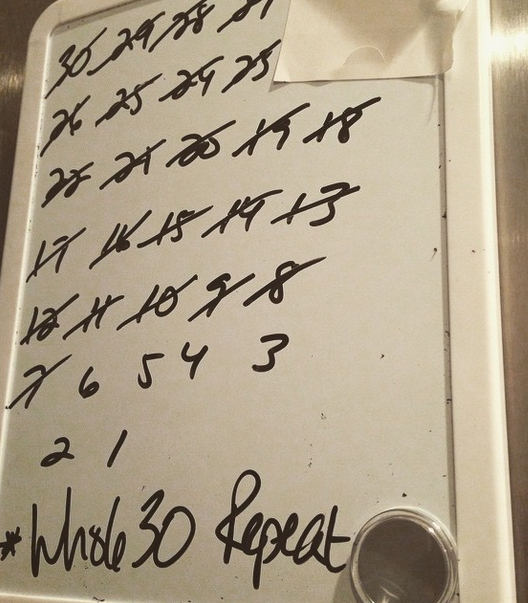 30 29 28 27
26 25 24 23
22 21 20 19 18
17 16 15 14 13
12 11 10 9 8
7 6 5 4 3
2 1
* Whole 30 Repeat